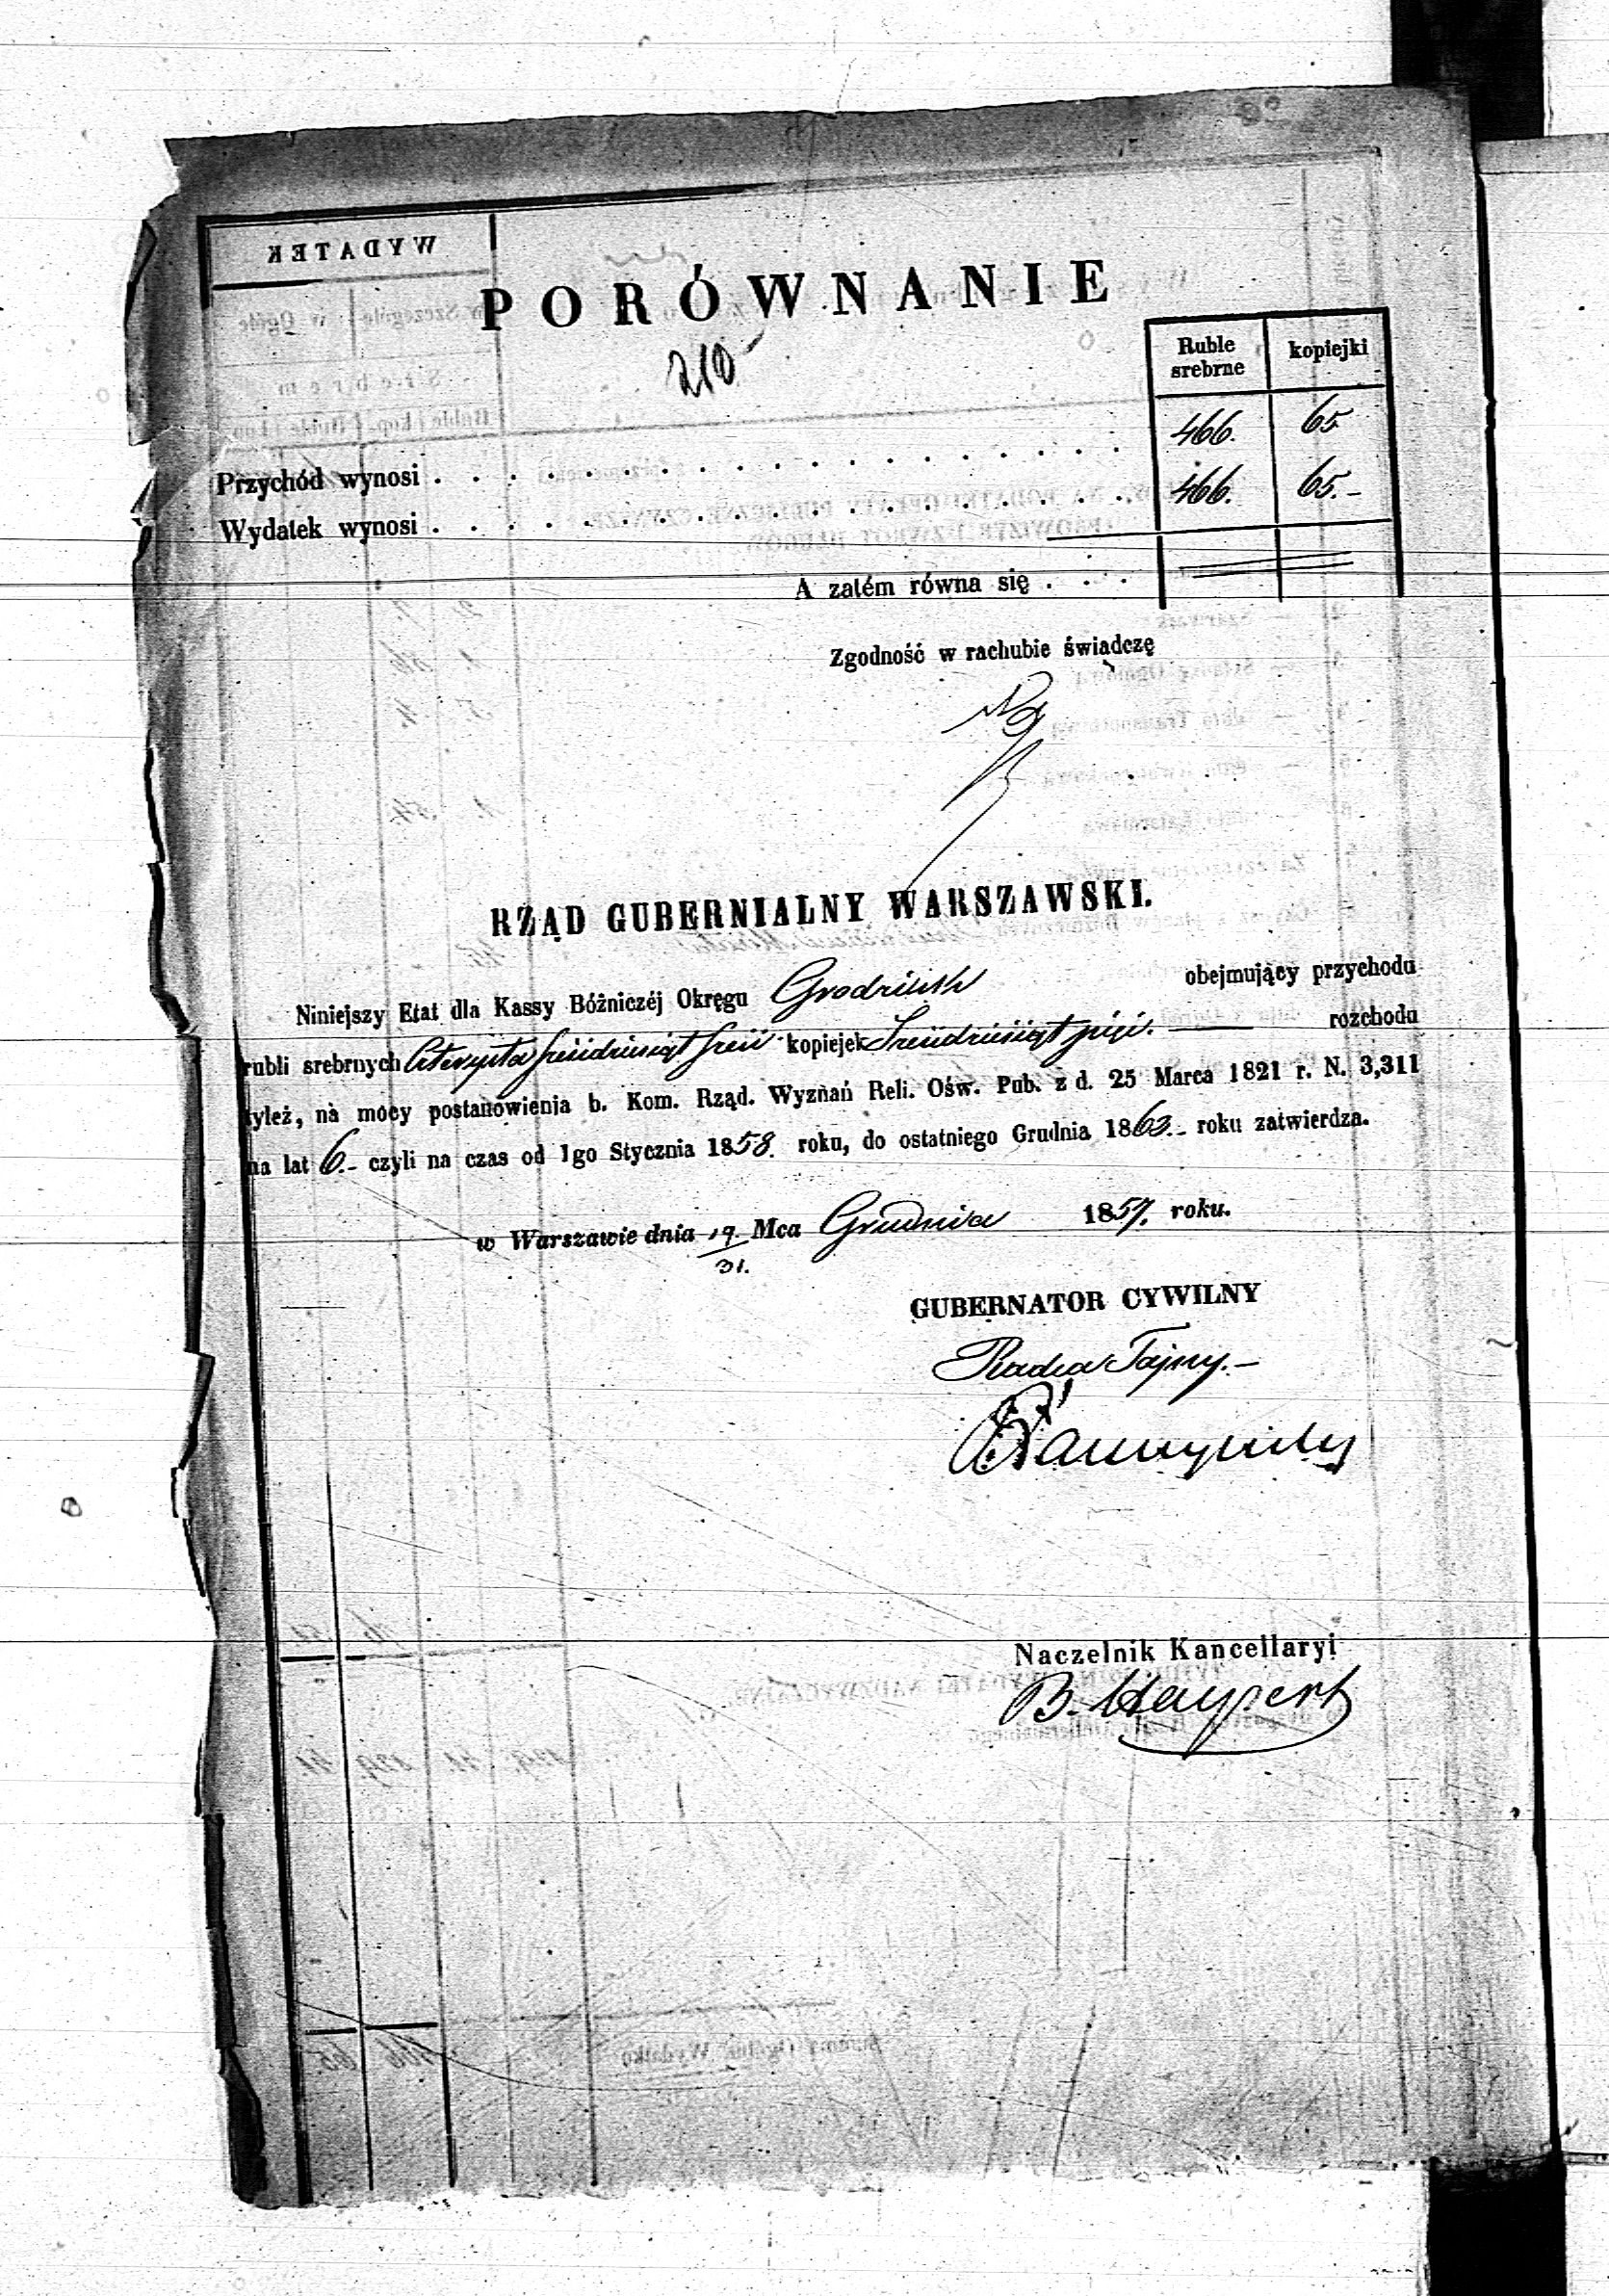 PORÓWNANIE
210
Ruble srebrne kopiejki
Przychód wynosi . . . . . . . . . . . . . . . . . . . 466. 65
Wydatek wynosi . . . . . . . . . . . . . . . . . . . 466. 65.-
A zatém równa się . . .
Zgodność w rachubie świadczę
RZĄD GUBERNIALNY WARSZAWSKI.
Niniejszy Etat dla Kassy Bóżniczéj Okręgu Grodzisk obejmujący przychodu
rubli srebrnych Czterysta sześćdziesiąt sześć kopiejek Sześćdziesiąt pięć. — rozchodu
tyleż, na mocy postanowienia b. Kom. Rząd. Wyznań Reli. Ośw. Pub. z d. 25 Marca 1821 r. N. 3,311
na lat 6.- czyli na czas od 1go Stycznia 1858. roku, do ostatniego Grudnia 1863.- roku zatwierdza.
w Warszawie dnia 19/31. Mca Grudnia 1857. roku.
GUBERNATOR CYWILNY
Radca Tajny.-
Naczelnik Kancellaryi
B. Haypert
WYDATEK